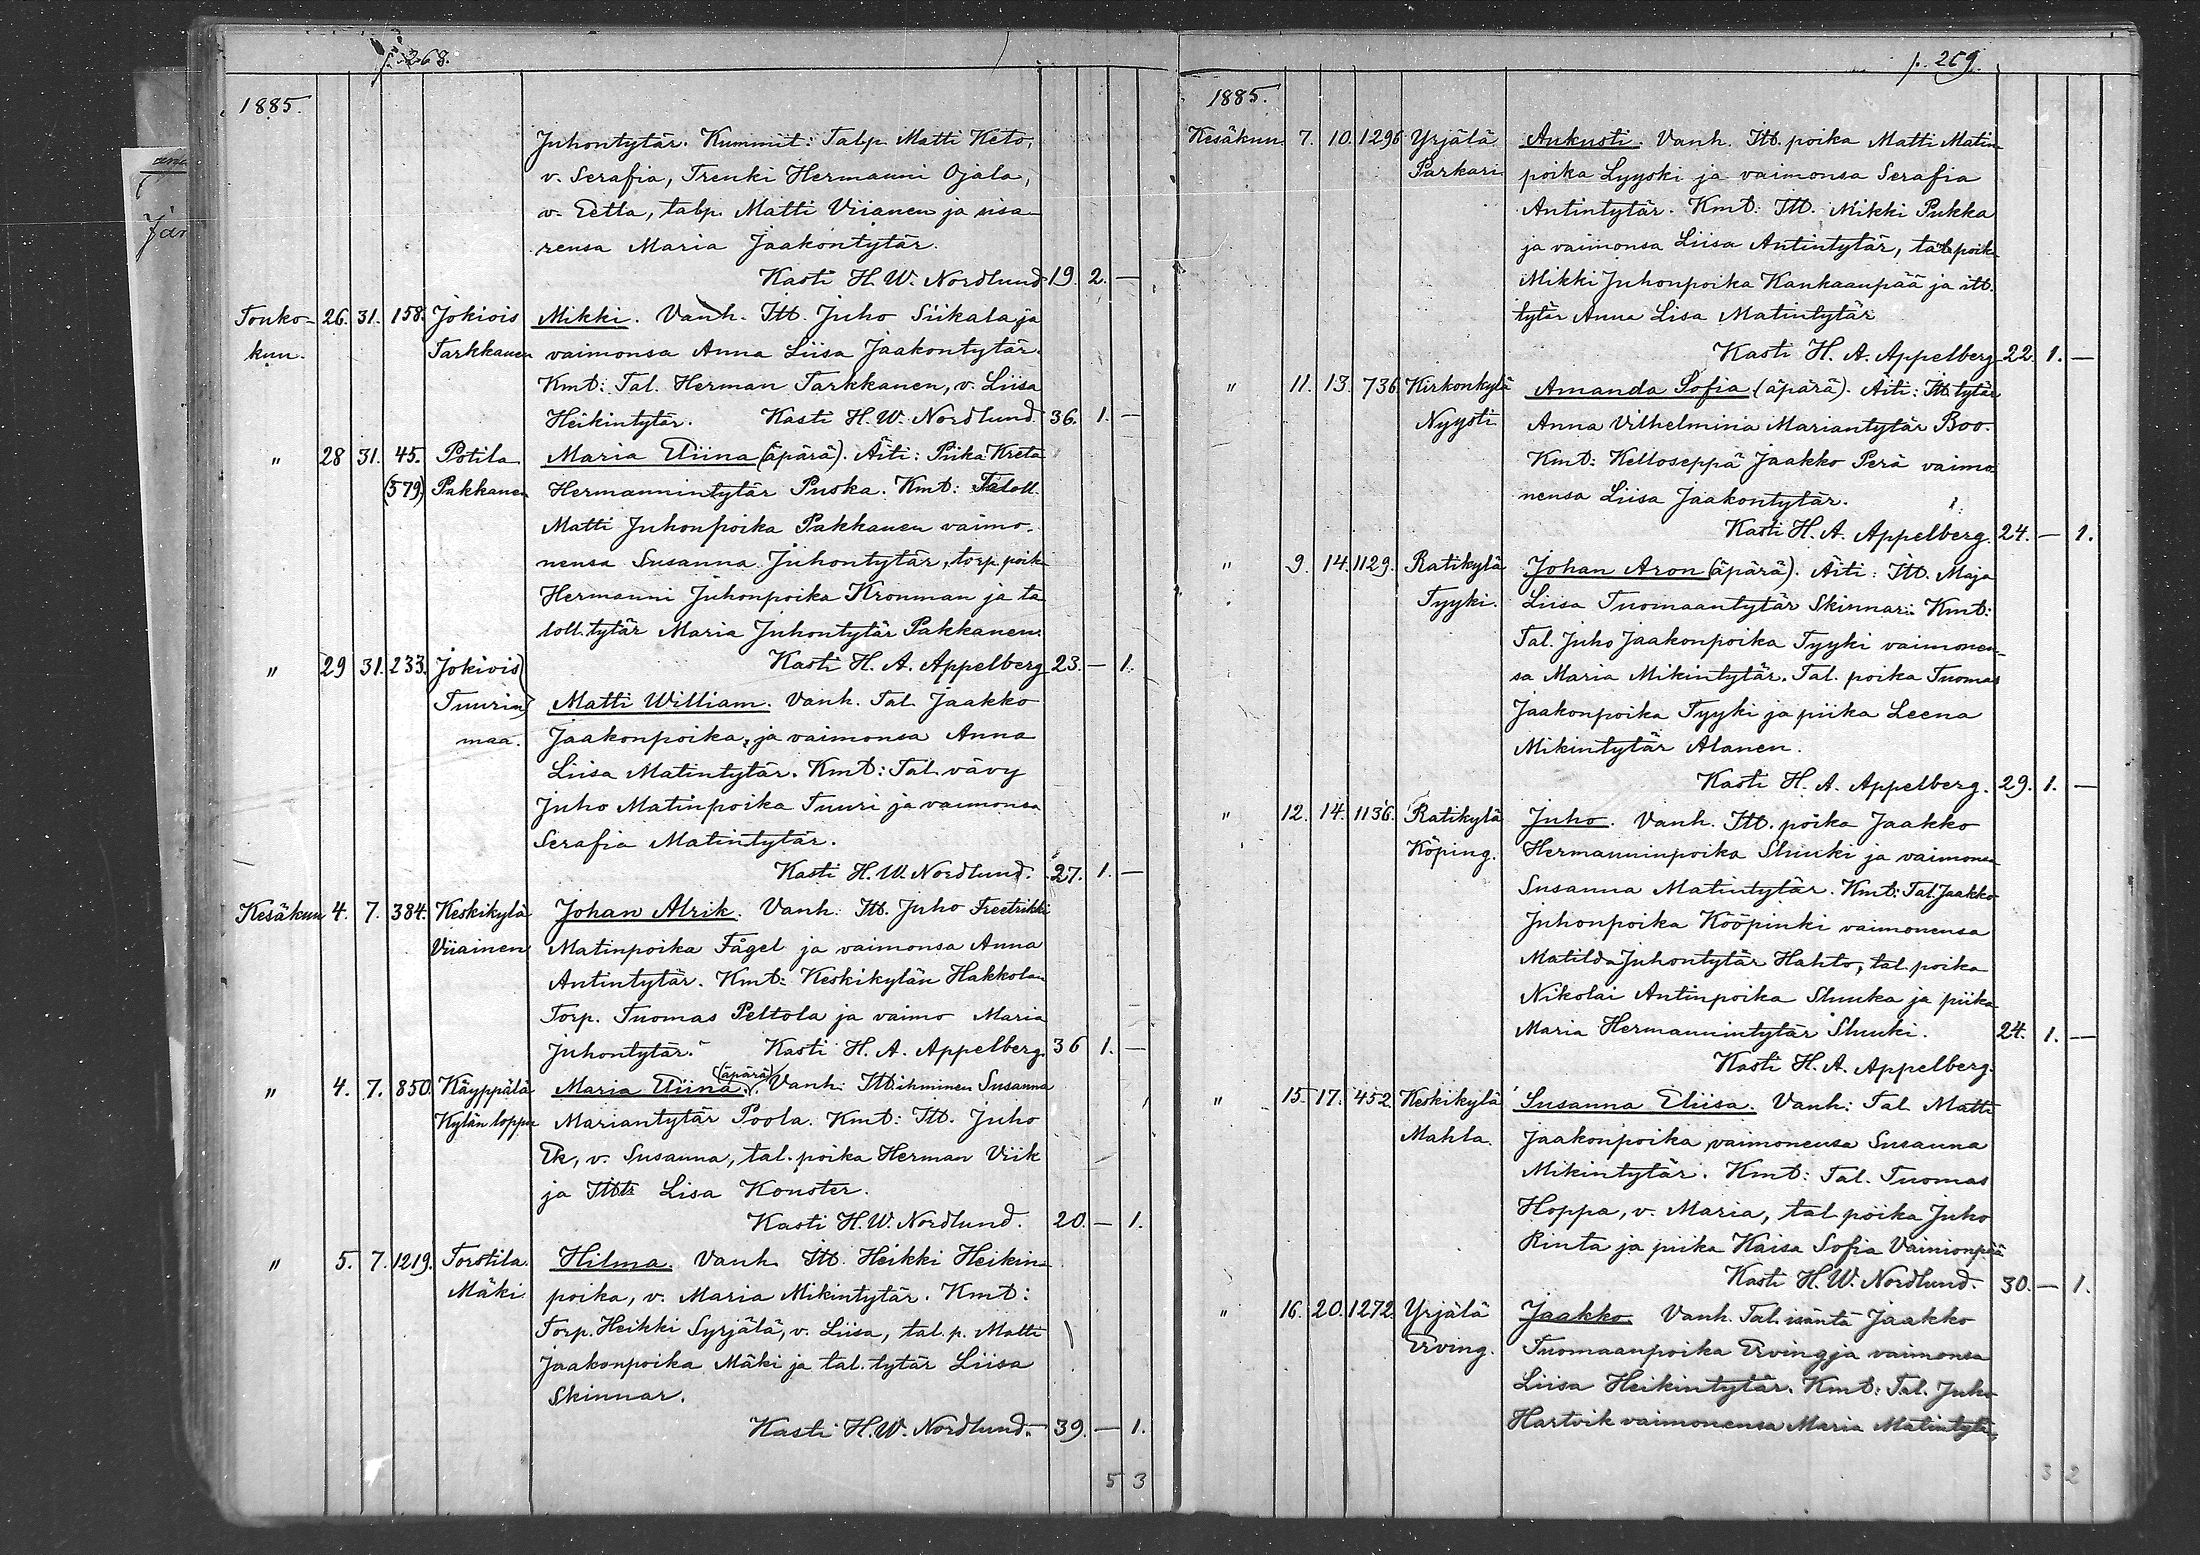 p. 268.
1885.
Juhontytär. Kummit: Talp. Matti Keto,
v. Serafia, Trenki Hermanni Ojala,
v. Eetla, talp. Matti Viianen ja sisa-
rensa Maria Jaakontytär.
Kasti H. W. Nordlund 19. 2. —
Touko- 26. 31. 158. Jokiois Mikki. Vanh. Itt. Juho Siikala ja
kuu. Tarkkanen vaimonsa Anna Liisa Jaakontytär.
Kmt: Tal. Herman Tarkkanen, v. Liisa
Heikintytär. Kasti H. W. Nordlund 36. 1. —
" 28 31. 45. Potila Maria Eliina (äpärä). Äiti: Piika Kreta
(579) Pakkanen Hermannintytär Puska. Kmt: Taloll.
Matti Juhonpoika Pakkanen vaimo-
nensa Susanna Juhontytär, torp. poik
Hermanni Juhonpoika Kronman ja ta
loll. tytär Maria Juhontytär Pakkanen.
" 29 31. 233. Jokiois Kasti H. A. Appelberg 23. — 1.
Tuurin Matti William. Vanh. Tal. Jaakko
maa. Jaakonpoika, ja vaimonsa Anna
Liisa Matintytär. Kmt: Tal. vävy
Juho Matinpoika Tuuri ja vaimonsa
Serafia Matintytär.
Kasti H. W. Nordlund. 27. 1. —
Kesäkuu 4. 7. 384. Keskikylä Johan Alrik. Vanh. Itt. Juho Freetrikki
Viiainen Matinpoika Fågel ja vaimonsa Anna
Antintytär. Kmt: Keskikylän Hakkolan
Torp. Tuomas Peltola ja vaimo Maria
Juhontytär. Kasti H. A. Appelberg. 36 1. —
" 4. 7. 850. Käyppälä Maria Eliina (äpärä). Vanh: Itt. ihminen Susanna
Kylän loppu Mariantytär Poola. Kmt: Itt. Juho
Ek, v. Susanna, tal. poika Herman Viik
ja Itttr Lisa Konster.
Kasti H. W. Nordlund. 20. — 1.
" 5. 7. 1219. Torstila Hilma. Vanh. Itt. Heikki Heikin-
Mäki poika, v. Maria Mikintytär. Kmt:
Torp. Heikki Syrjälä, v. Liisa, tal. p. Matti
Jaakonpoika Mäki ja tal. tytär Liisa
Skinnar.
Kasti H. W. Nordlund. 39. — 1.
5 3
p. 269.
1885.
Kesäkuu 7. 10. 1296 Yrjälä Aukusti. Vanh. Itt. poika Matti Matin
Parkari poika Lyyski ja vaimonsa Serafia
Antintytär. Kmt: Itt. Mikki Pukka
ja vaimonsa Liisa Antintytär, tal. poik
Mikki Juhonpoika Kankaanpää ja itt.
tytär Anna Lisa Matintytär
Kasti H. A. Appelberg 22. 1. —
" 11. 13. 736. Kirkonkylä Amanda Sofia (äpärä). Äiti: Itt. tytär
Nyysti Anna Vilhelmina Mariantytär Boo.
Kmt: Kelloseppä Jaakko Perä vaimo
nensa Liisa Jaakontytär.
Kasti H. A. Appelberg. 24. — 1.
" 9. 14. 1129. Ratikylä Johan Aron (äpärä). Äiti: Itt. Maja
Tyyki. Liisa Tuomaantytär Skinnari. Kmt:
Tal. Juho Jaakonpoika Tyyki vaimonen-
sa Maria Mikintytär. Tal. poika Tuomas
Jaakonpoika Tyyki ja piika Leena
Mikintytär Alanen.
Kasti H. A. Appelberg. 29. 1. —
" 12. 14. 1136. Ratikylä Juho. Vanh. Itt. poika Jaakko
Köping. Hermanninpoika Sluuki ja vaimonsa
Susanna Matintytär. Kmt: Tal. Jaakko
Juhonpoika Kööpinki vaimonensa
Matilda Juhontytär Hahto, tal. poika
Nikolai Antinpoika Sluuka ja piika
Maria Hermannintytär Sluuki. 24. 1. —
Kasti H. A. Appelberg.
" 15. 17. 452. Keskikylä Susanna Eliisa. Vanh: Tal. Matti
Mahla. Jaakonpoika vaimonensa Susanna
Mikintytär. Kmt: Tal. Tuomas
Hoppa, v. Maria, tal. poika Juho
Rinta ja piika Kaisa Sofia Vainionpää
Kasti H. W. Nordlund. 30. — 1.
" 16. 20. 1272. Yrjälä Jaakko. Vanh. Tal. isäntä Jaakko
Erving. Tuomaanpoika Erving ja vaimonsa
Liisa Heikintytär. Kmt: Tal. Juho
Hartvik vaimonensa Maria Matintytä
3 2